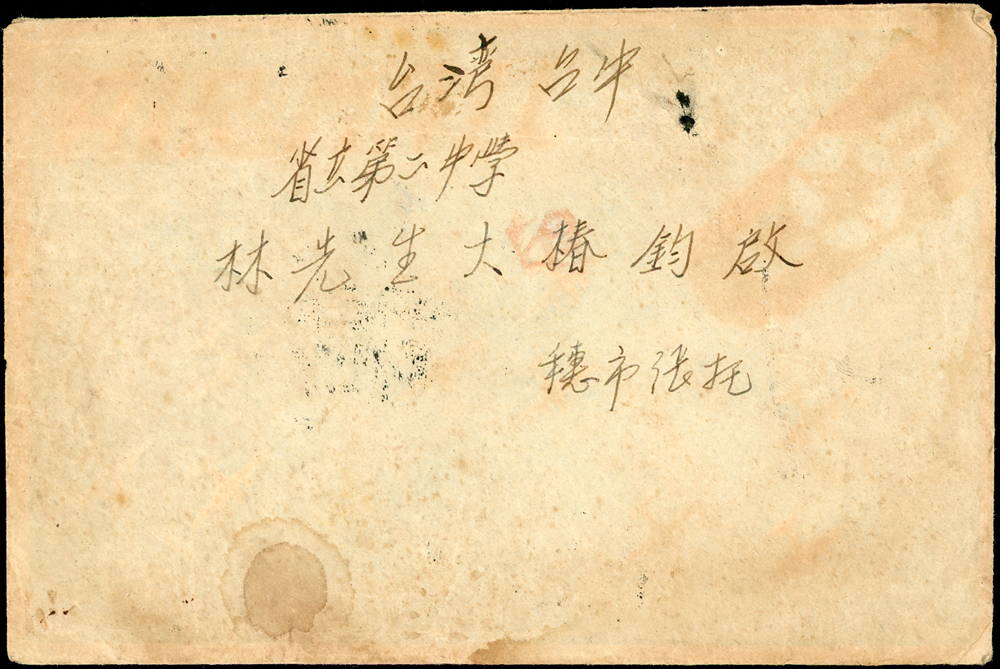 台湾 台中
省立第二中学
林先生大椿鈞啟
穗市張托